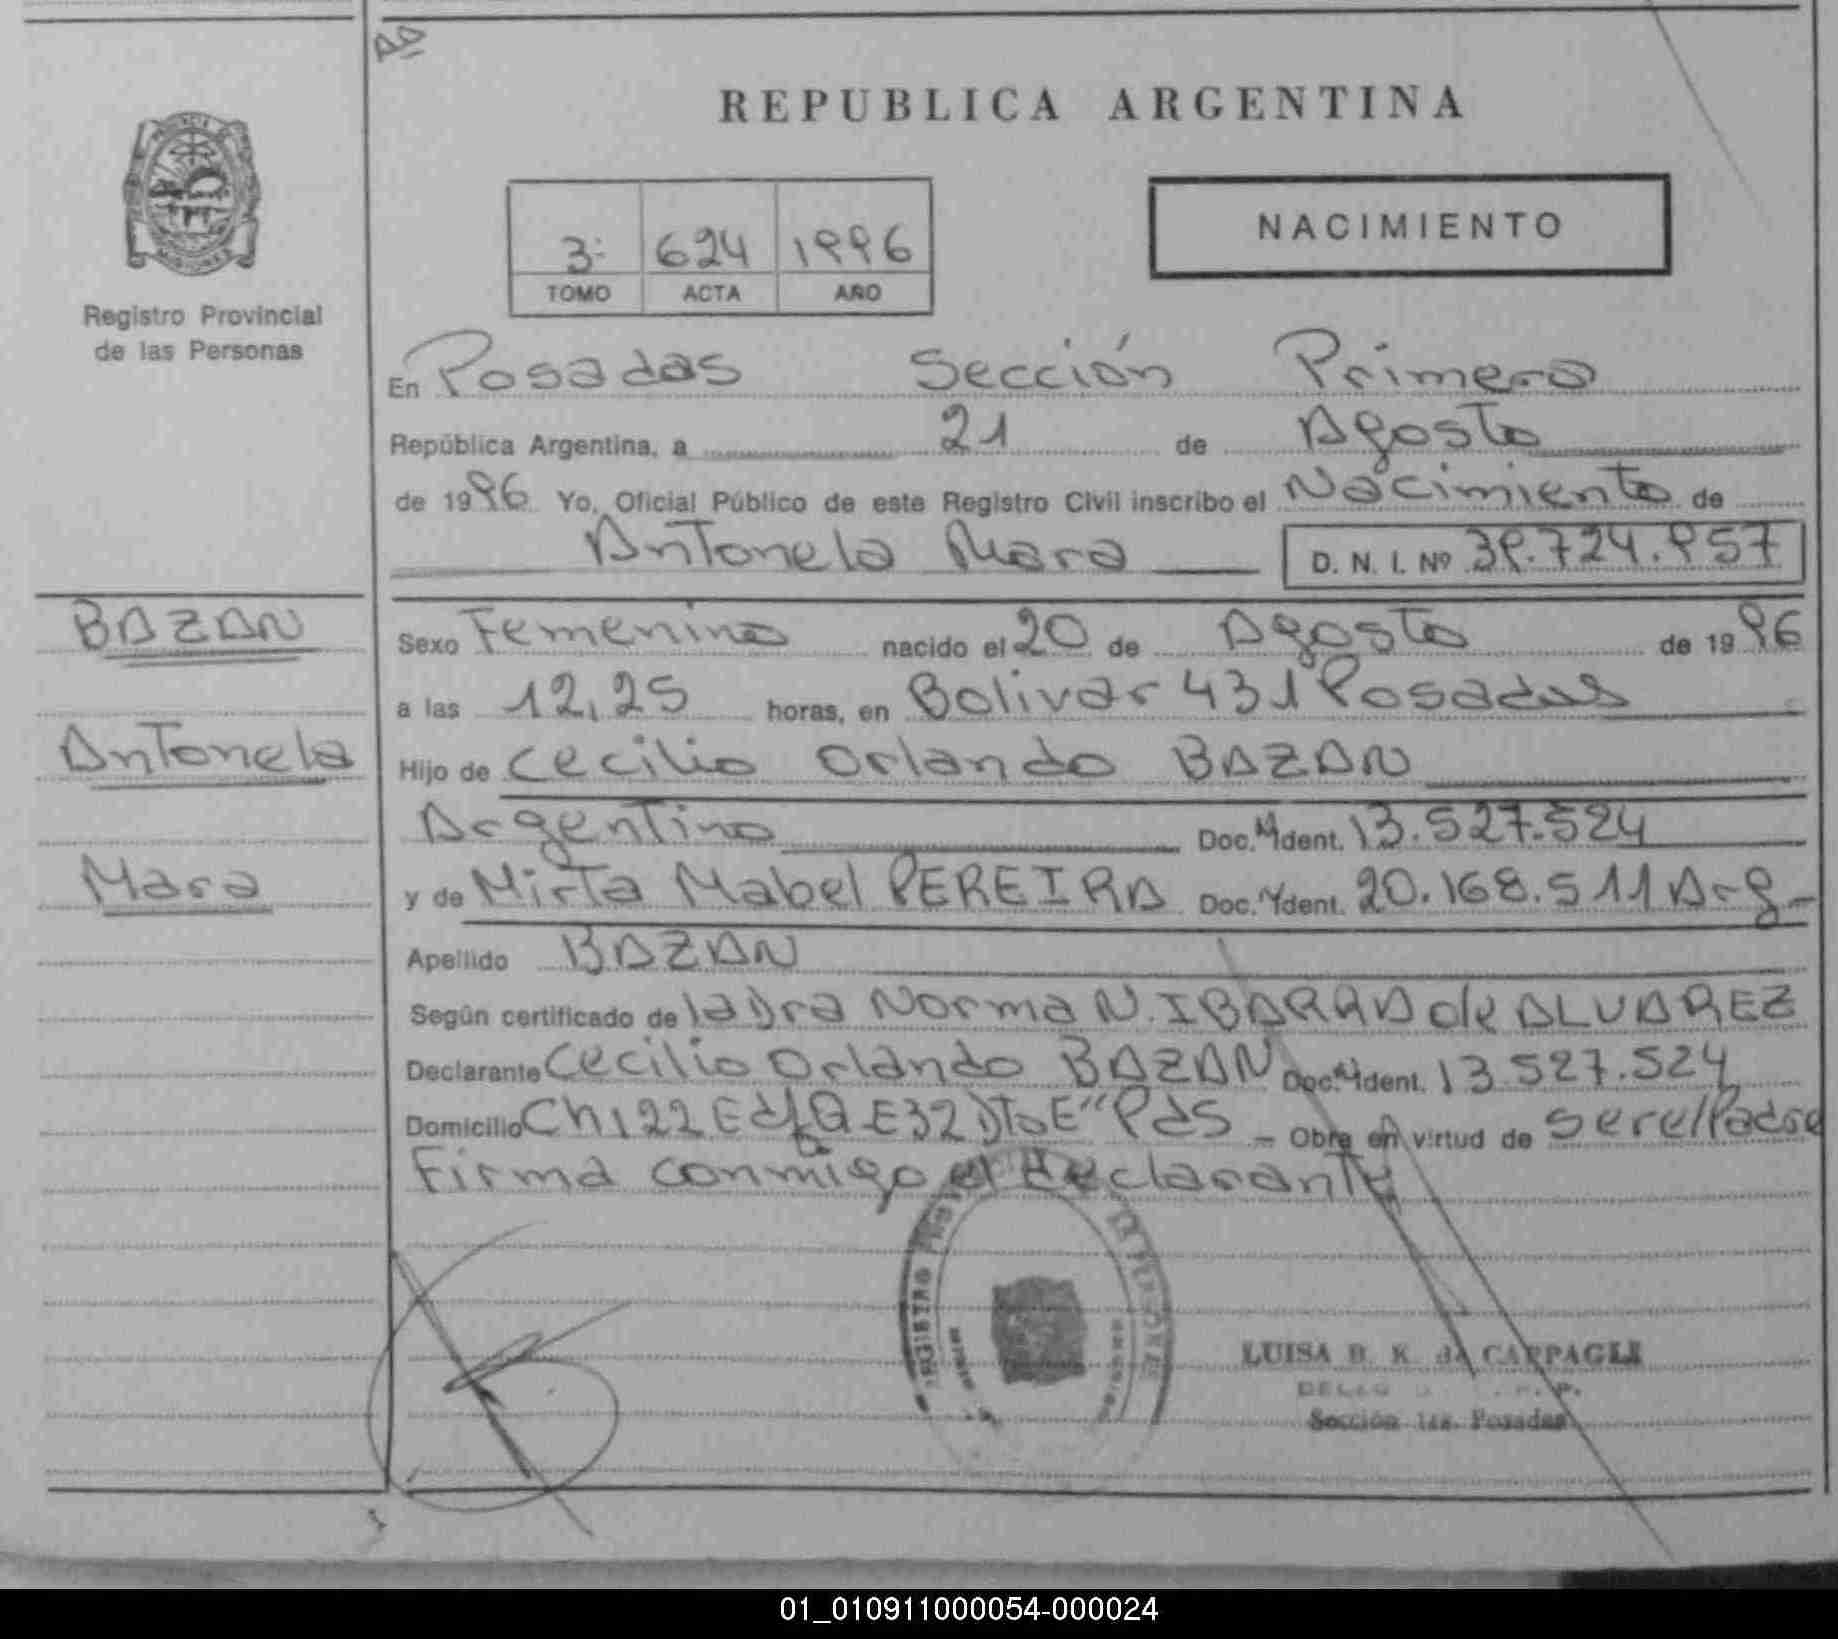 REPUBLICA ARGENTINA
NACIMIENTO
3: 624 1996
TOMO ACTA AÑO
Registro Provincial
de las Personas
En Posadas Sección Primera
República Argentina, a 21 de Agosto
de 1996 Yo, Oficial Público de este Registro Civil inscribo el Nacimiento de
Antonela Mara D. N. I. Nº 39.724.957
BAZAN
Antonela
Mara
Sexo Femenino nacido el 20 de Agosto de 1996
a las 12,25 horas, en Bolivar 431 Posadas
Hijo de Cecilio Orlando BAZAN
Argentino Doc. Ident. 13.527.524
y de Mirta Mabel PEREIRA Doc. Ident. 20.168.511 Arg-
Apellido BAZAN
Según certificado de la Dra Norma N. IBARRA de ALVAREZ
Declarante Cecilio Orlando BAZAN Doc. Ident. 13.527.524
Domicilio Ch 122 E32 Dto E" Pdas - Obra en virtud de ser el Padre
Firma conmigo el declarante
REGISTRO
LUISA B. K. de CARPAGLI
Sección 1ra. Posadas
01_010911000054-000024